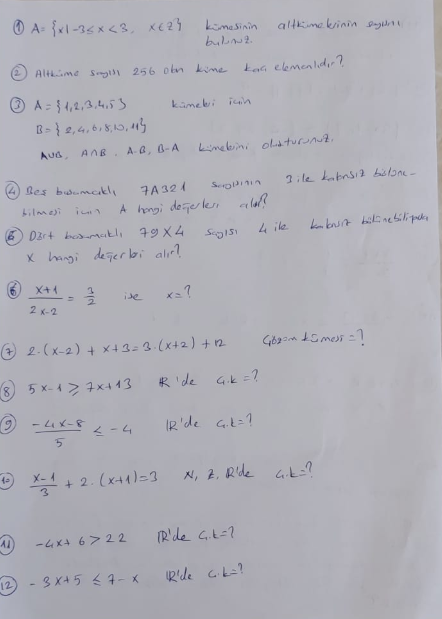 ① A = {x | -3 ≤ x < 3, x ∈ Z} kümesinin altkümelerinin sayısını
bulunuz.
② Altküme sayısı 256 olan küme kaç elemanlıdır?
③ A = {1,2,3,4,5} kümeleri için
B = {2,4,6,8,10,11}
A∪B, A∩B, A-B, B-A kümelerini oluşturunuz.
④ Beş basamaklı 7A321 sayısının 3 ile kalansız bölüne-
bilmesi için A hangi değerleri alır?
⑤ Dört basamaklı 79X4 sayısı 4 ile kalansız
x hangi değerleri alır?
⑥ x+1 / 2x-2 = 3/2 ise x=?
⑦ 2.(x-2) + x+3 = 3.(x+2) + 12 Çözüm kümesi = ?
⑧ 5x-1 ≥ 7x+13 R'de Ç.k=?
⑨ -4x-8 / 5 ≤ -4 R'de Ç.k=?
⑩ x-1 / 3 + 2.(x+1) = 3 N, Z, R'de Ç.k=?
⑪ -4x+6 > 22 R'de Ç.k=?
⑫ -3x+5 ≤ 7-x R'de Ç.k=?